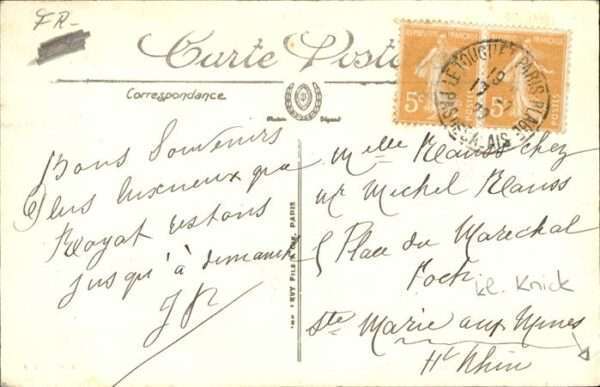 FR-
Carte Postale
Correspondance
REPUBLIQUE FRANÇAISE
5c
POSTES
5c
POSTES
LE TOUQUET-PARIS-PLAGE
PAS-DE-CALAIS
Bons Souvenirs
Plus luxueux que
Royat restons
jusqu'à dimanche
Melle Klauss chez
Mr Michel Klauss
5 Place du Marechal
Foch
kl. Knick
Ste Marie aux Mines
Ht Rhin
LEVY FILS & CIE, PARIS